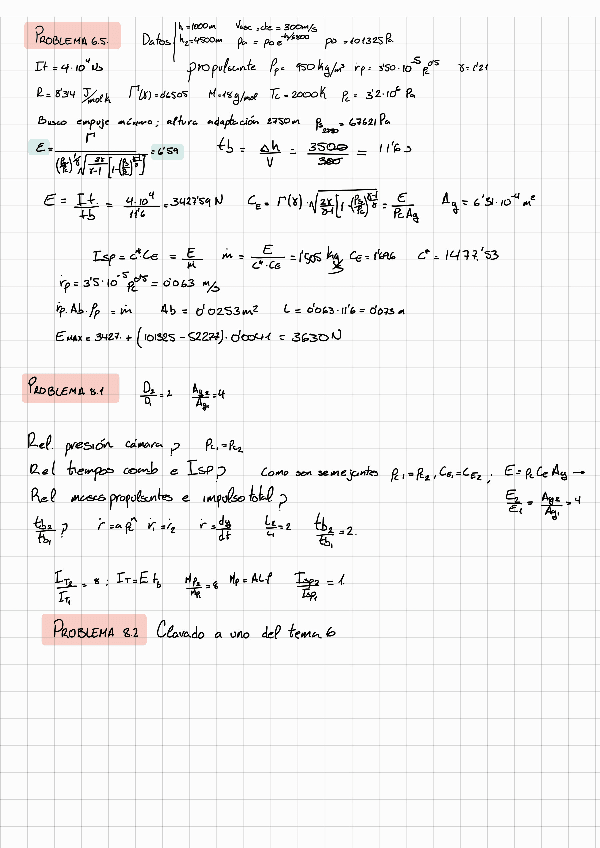 PROBLEMA 6.5. Datos h₁=1000m Vasc=cte=300m/s
h₂=4500m pa = p0 e^(-h/6800) p0=101325Pa
It=4·10⁴ Ns propulsante ρp= 950kg/m³ ṙp=3'50·10⁻⁵ Pc^0'5 γ=1'21
R=8'314 J/molK Γ(γ)=0'6505 M=18g/mol Tc=2000K Pc=3'2·10⁶ Pa
Busco empuje máximo; altura adaptación 2750m Ps2750=67621Pa
ε = Γ / ((Ps/Pc)^(1/γ) √(2γ/(γ-1) [1-(Ps/Pc)^((γ-1)/γ)])) = 6'59 tb = Δh/V = 3500/300 = 11'6 s
E = It/tb = 4·10⁴/11'6 = 3427'59 N CE = Γ(γ)·√(2γ/(γ-1) [1-(Ps/Pc)^((γ-1)/γ)] = E/(Pc Ag) Ag = 6'31·10⁻⁴ m²
Isp = c*CE = E/ṁ ṁ = E/(c*·CE) = 1'505 kg/s CE=1'696 c* = 1477'53
ṙp = 3'5·10⁻⁵ Pc^0'5 = 0'063 m/s
ṙp·Ab·ρp = ṁ Ab = 0'0253m² L = 0'063·11'6 = 0'073 m
EMAX = 3427 + (101325 - 52277)·0'0041 = 3630N
PROBLEMA 8.1 D2/D1=2 Ag2/Ag1=4
Rel. presión cámara? Pc1=Pc2
Rel tiempos comb e Isp? Como son semejantes Pc1=Pc2, CE1=CE2; E=Pc CE Ag →
Rel masas propulsantes e impulso total? E2/E1 = Ag2/Ag1 = 4
tb2/tb1? ṙ=a Pc^n ṙ1=ṙ2 ṙ=dy/dt L2/L1=2 tb2/tb1=2.
IT2/IT1 = 8; IT=E tb Mp2/Mp1=8 Mp=ALρ Isp2/Isp1 = 1.
PROBLEMA 8.2 Clavado a uno del tema 6